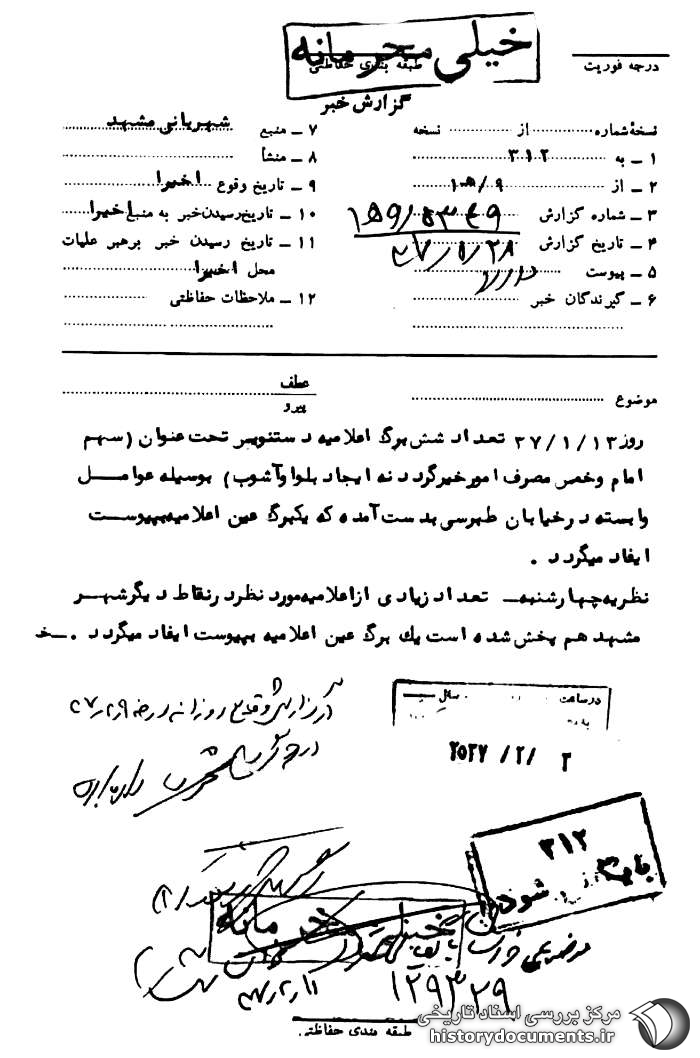 خیلی محرمانه
طبقه بندی حفاظتی
درجه فوریت
گزارش خبر
نسخهٔ شماره از نسخه
۱ ـ به ۳۱۲
۲ ـ از ۹/ه۱
۳ ـ شماره گزارش
۴ ـ تاریخ گزارش ۳۷/۱/۲۸
۵ ـ پیوست دارد
۶ ـ گیرندگان خبر
۷ ـ منبع شهربانی مشهد
۸ ـ منشأ
۹ ـ تاریخ وقوع اخیرا
۱۰ ـ تاریخ رسیدن خبر به منبع اخیرا
۱۱ ـ تاریخ رسیدن خبر برهبر عملیات
محل اخیرا
۱۲ ـ ملاحظات حفاظتی
موضوع
عطف
پیرو
روز ۳۷/۱/۱۳ تعداد شش برگ اعلامیه دستنویس تحت عنوان (سهم
امام وخمس مصرف امور خیر گردد نه ایجاد بلوا وآشوب) بوسیله عوامل
وابسته در خیابان طبرسی بدست آمده که یکبرگ عین اعلامیه بپیوست
ایفاد میگردد .
نظریه چهارشنبه ـ تعداد زیادی از اعلامیه مورد نظر در نقاط دیگر شهر
مشهد هم پخش شده است یک برگ عین اعلامیه بپیوست ایفاد میگردد . خ
در گزارش وقایع روزانه
در ساعت سال
۲۵۳۷ /۲/ ۲
۳۱۲
شود
خیلی محرمانه
۱۲۹۳۲۹
طبقه بندی حفاظتی
مرکز بررسی اسناد تاریخی
historydocuments.ir